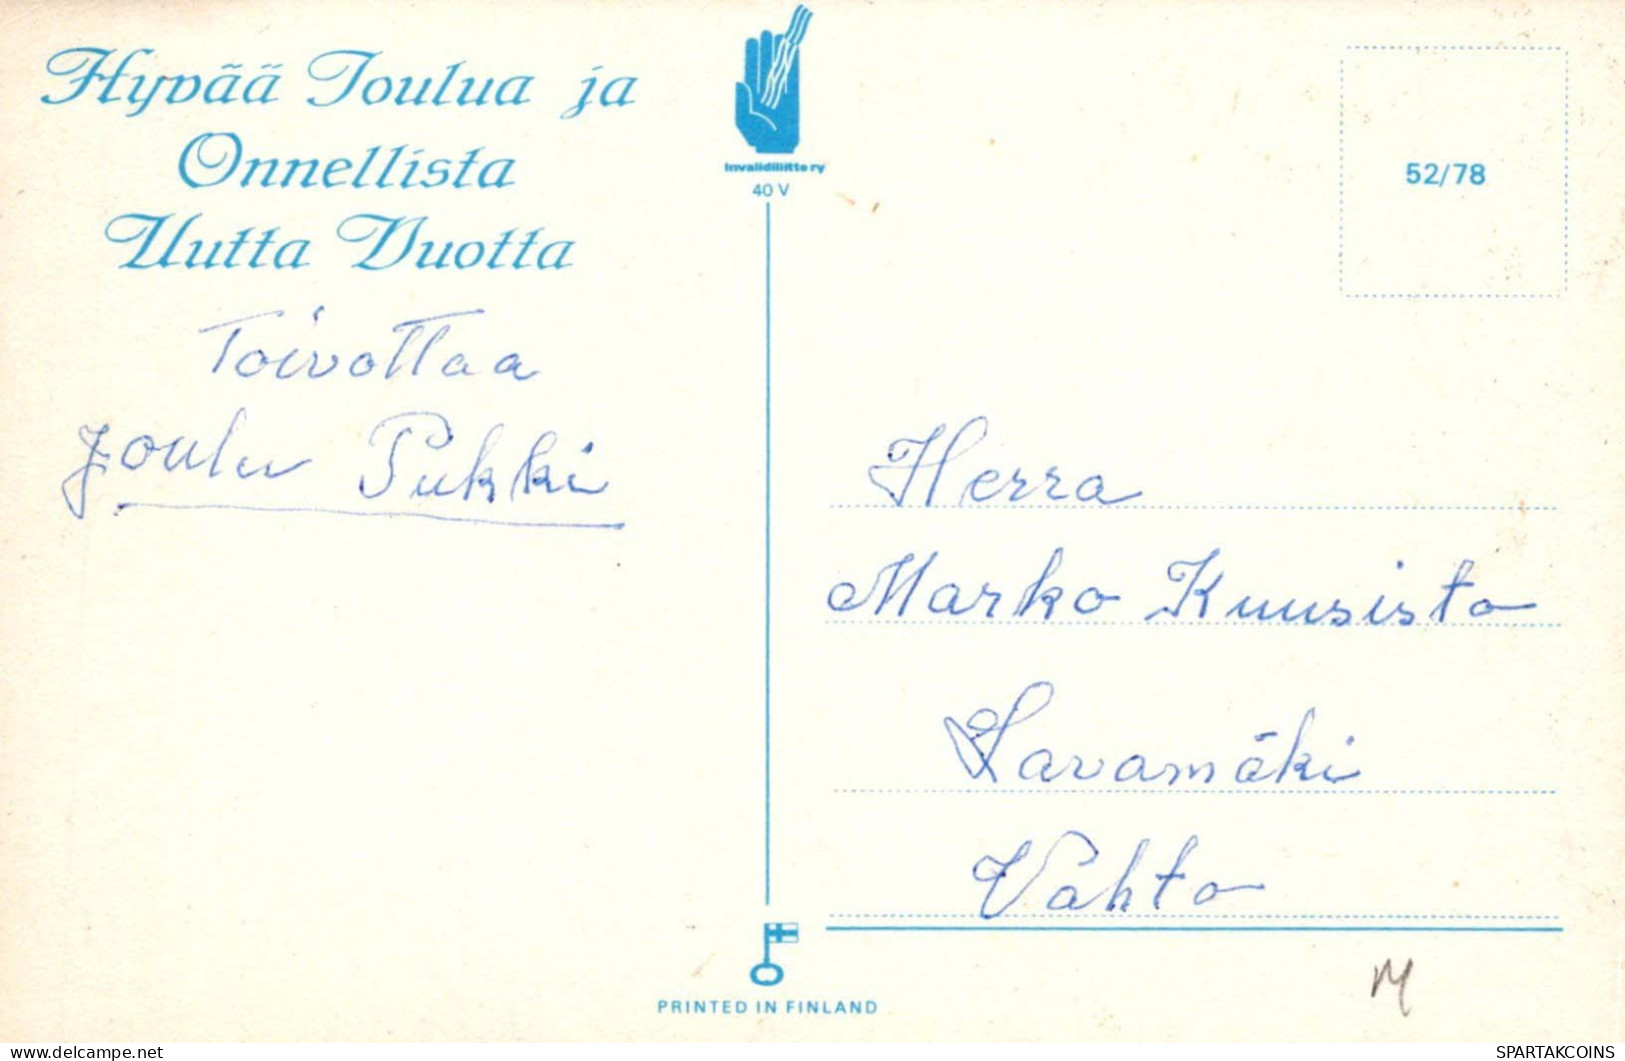 Hyvää Joulua ja
Onnellista
Uutta Vuotta
Toivottaa
Joulu Pukki
Invalidiliitto ry
40 V
52/78
Herra
Marko Kuusisto
Lavamäki
Vahto
PRINTED IN FINLAND
M
www.delcampe.net
SPARTAKCOINS